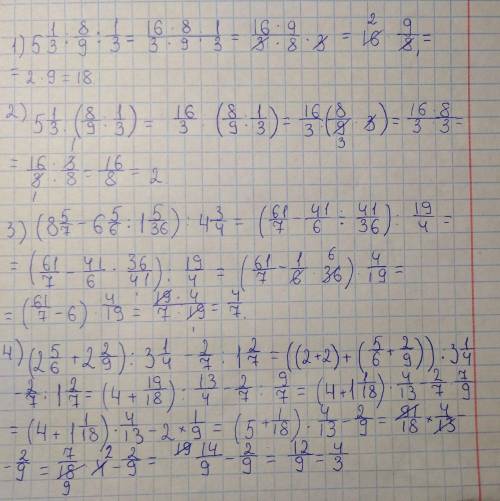 1) 5 1/3 : 8/9 : 1/3 = 16/3 : 8/9 : 1/3 = 16 · 9/3 · 8 · 3 = 16 · 9/8 =
= 2 · 9 = 18
2) 5 1/3 : (8/9 : 1/3) = 16/3 : (8/9 : 1/3) = 16/3 : (8/9 · 3) = 16/3 : 8/3 =
= 16 · 3/3 · 8 = 16/8 = 2
3) (8 5/7 - 6 5/6 : 1 5/36) : 4 3/4 = (61/7 - 41/6 : 41/36) : 19/4 =
= (61/7 - 41/6 · 36/41) : 19/4 = (61/7 - 1/6 · 36) · 4/19 =
= (61/7 - 6) · 4/19 = 19 · 4/7 · 19 = 4/7.
4) (2 5/6 + 2 2/9) : 3 1/4 - 2/7 : 1 2/7 = ((2+2) + (5/6 + 2/9)) : 3 1/4
- 2/7 : 1 2/7 = (4 + 19/18) : 13/4 - 2/7 : 9/7 = (4 + 1 1/18) · 4/13 - 2/7 · 7/9
= (4 + 1 1/18) · 4/13 - 2 × 1/9 = (5 + 1/18) · 4/13 - 2/9 = 91/18 × 4/13 -
- 2/9 = 14/9 - 2/9 = 12/9 = 4/3